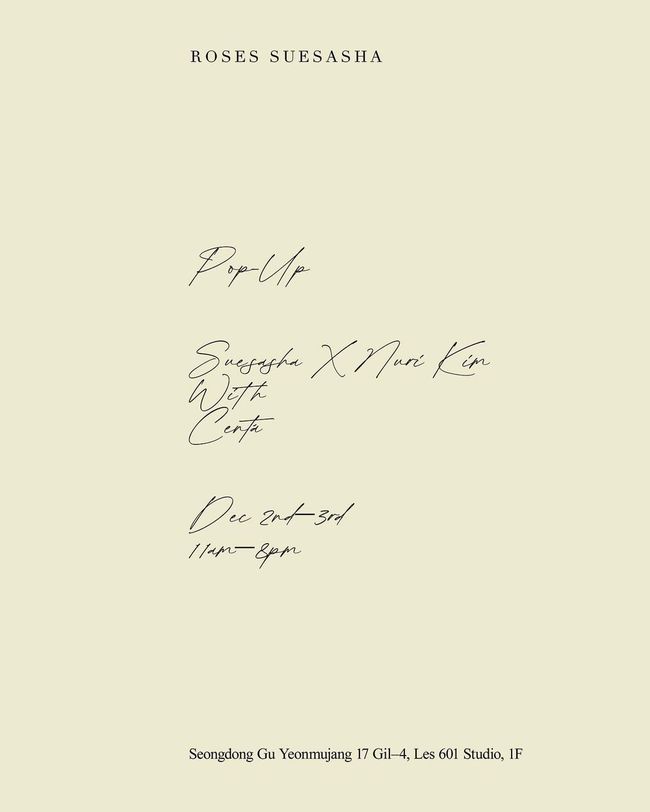 ROSES SUESASHA
Pop-Up
Suesasha X Nuri Kim
With
Centa
Dec 2nd—3rd
11am—8pm
Seongdong Gu Yeonmujang 17 Gil–4, Les 601 Studio, 1F